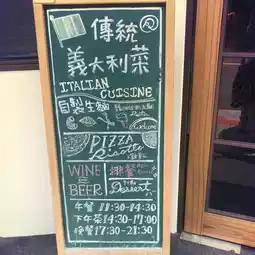 傳統
義大利菜
ITALIAN
CUISINE
自製生麵
Pasta
Welcome
PIZZA
Risotto
燉飯
WINE
BEER
排餐
Dessert
午餐 11:30-14:30
下午茶 14:30-17:00
晚餐 17:30-21:30